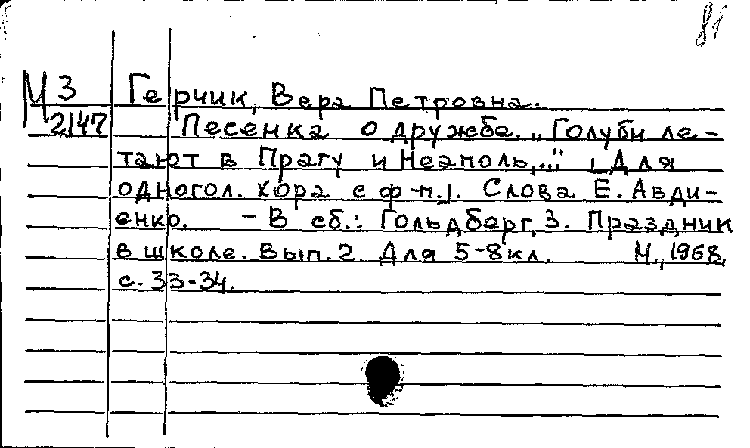 81
М 3 Герчик, Вера Петровна.
2147 Песенка о дружбе. „Голуби ле-
тают в Прагу и Неаполь,..." [Для
одногол. хора с ф-п.]. Слова Е. Авди-
енко. - В сб.: Гольдберг, З. Праздник
в школе. Вып. 2. Для 5-8 кл. М., 1968,
с. 33-34.